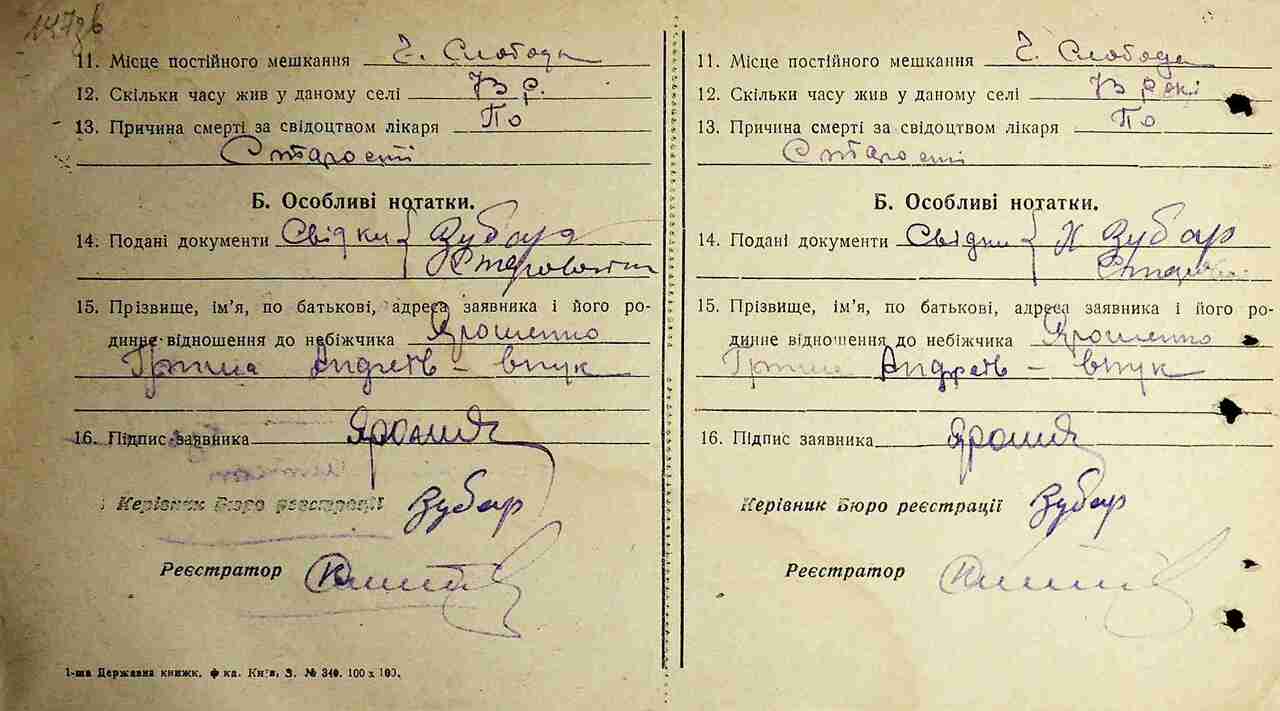 11. Місце постійного мешкання Ч. Слобода
12. Скільки часу жив у даному селі 73 р.
13. Причина смерті за свідоцтвом лікаря По
Старості
Б. Особливі нотатки.
14. Подані документи Свідки { Зубар
15. Прізвище, ім'я, по батькові, адреса заявника і його ро-
динне відношення до небіжчика Ярошенко
Гриша Андреев - внук
16. Підпис заявника
Керівник Бюро реєстрації Зубар
Реєстратор
1-ша Державна книжк. ф-ка. Київ, З. № 340. 100 х 100.
11. Місце постійного мешкання Ч. Слобода
12. Скільки часу жив у даному селі 73 рокі
13. Причина смерті за свідоцтвом лікаря По
Старості
Б. Особливі нотатки.
14. Подані документи Свідки { Зубар
15. Прізвище, ім'я, по батькові, адреса заявника і його ро-
динне відношення до небіжчика Ярошенко
Гриша Андреев - внук
16. Підпис заявника
Керівник Бюро реєстрації Зубар
Реєстратор